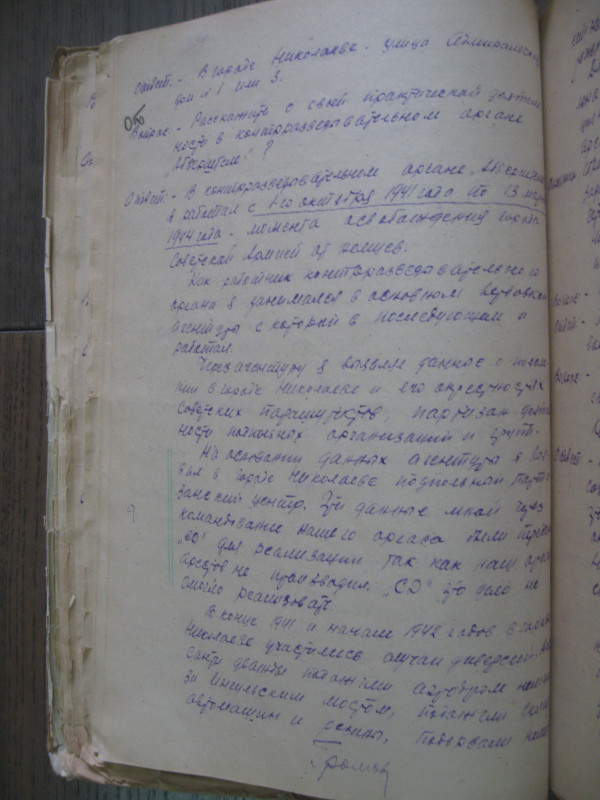 Ответ:- В городе Николаеве - улица Адмиральская
дом № 1 или 3.
Вопрос:- Расскажите о своей практической деятель
ности в контрразведывательном органе
"Абверштеле"?
Ответ:- В контрразведывательном органе "Абверштеле"
я работал с 1-го октября 1941 года по 13 мар
1944 года - момента освобождения города
Советской Армией от немцев.
Как работник контрразведывательного
органа я занимался в основном вербовкой
агентуры с которой в последующем и
работал.
Через агентуру я выявлял данные о
в городе Николаеве и его окрестностях
советских парашютистов, партизан, деятель
ности подпольных организаций и групп.
На основании данных агентуры я выя
вил в городе Николаеве подпольный парти
занский центр. Эти данные мной через
командование нашего органа были
"СД" для реализации так как наш орган
арестов не производил. "СД" это дело не
смогло реализовать.
В конце 1941 и начале 1942 годов в городе
Николаеве участились случаи диверсий.
подожгли аэродром
за Ингульским мостом, подожгли
автомашин и резины, подорвали